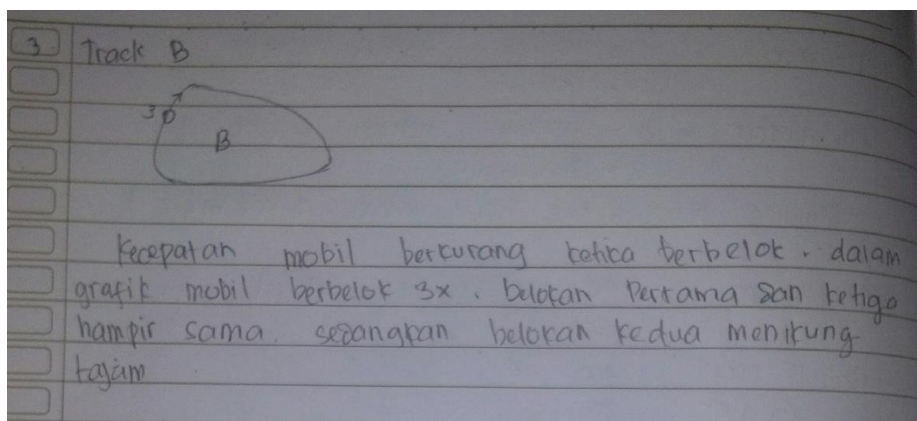 3 Track B
3
B
Kecepatan mobil berkurang ketika berbelok. dalam
grafik mobil berbelok 3x. belokan Pertama dan ketiga
hampir sama. sedangkan belokan kedua menikung
tajam